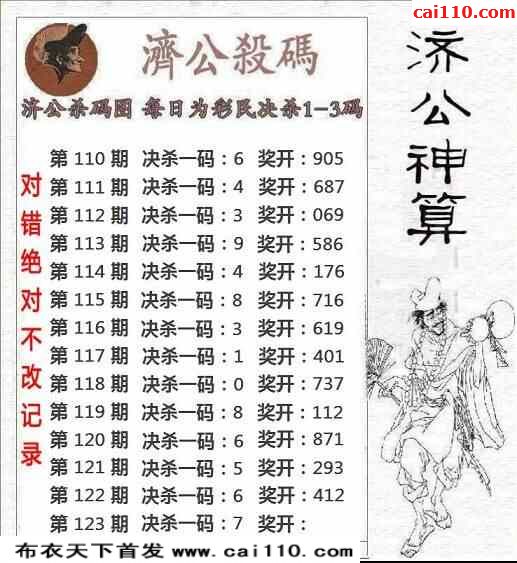 cai110.com
濟公殺碼
济公杀码图 每日为彩民决杀1-3码
济公神算
对错绝对不改记录
第 110 期 决杀一码：6 奖开：905
第 111 期 决杀一码：4 奖开：687
第 112 期 决杀一码：3 奖开：069
第 113 期 决杀一码：9 奖开：586
第 114 期 决杀一码：4 奖开：176
第 115 期 决杀一码：8 奖开：716
第 116 期 决杀一码：3 奖开：619
第 117 期 决杀一码：1 奖开：401
第 118 期 决杀一码：0 奖开：737
第 119 期 决杀一码：8 奖开：112
第 120 期 决杀一码：6 奖开：871
第 121 期 决杀一码：5 奖开：293
第 122 期 决杀一码：6 奖开：412
第 123 期 决杀一码：7 奖开：
布衣天下首发 www.cai110.com